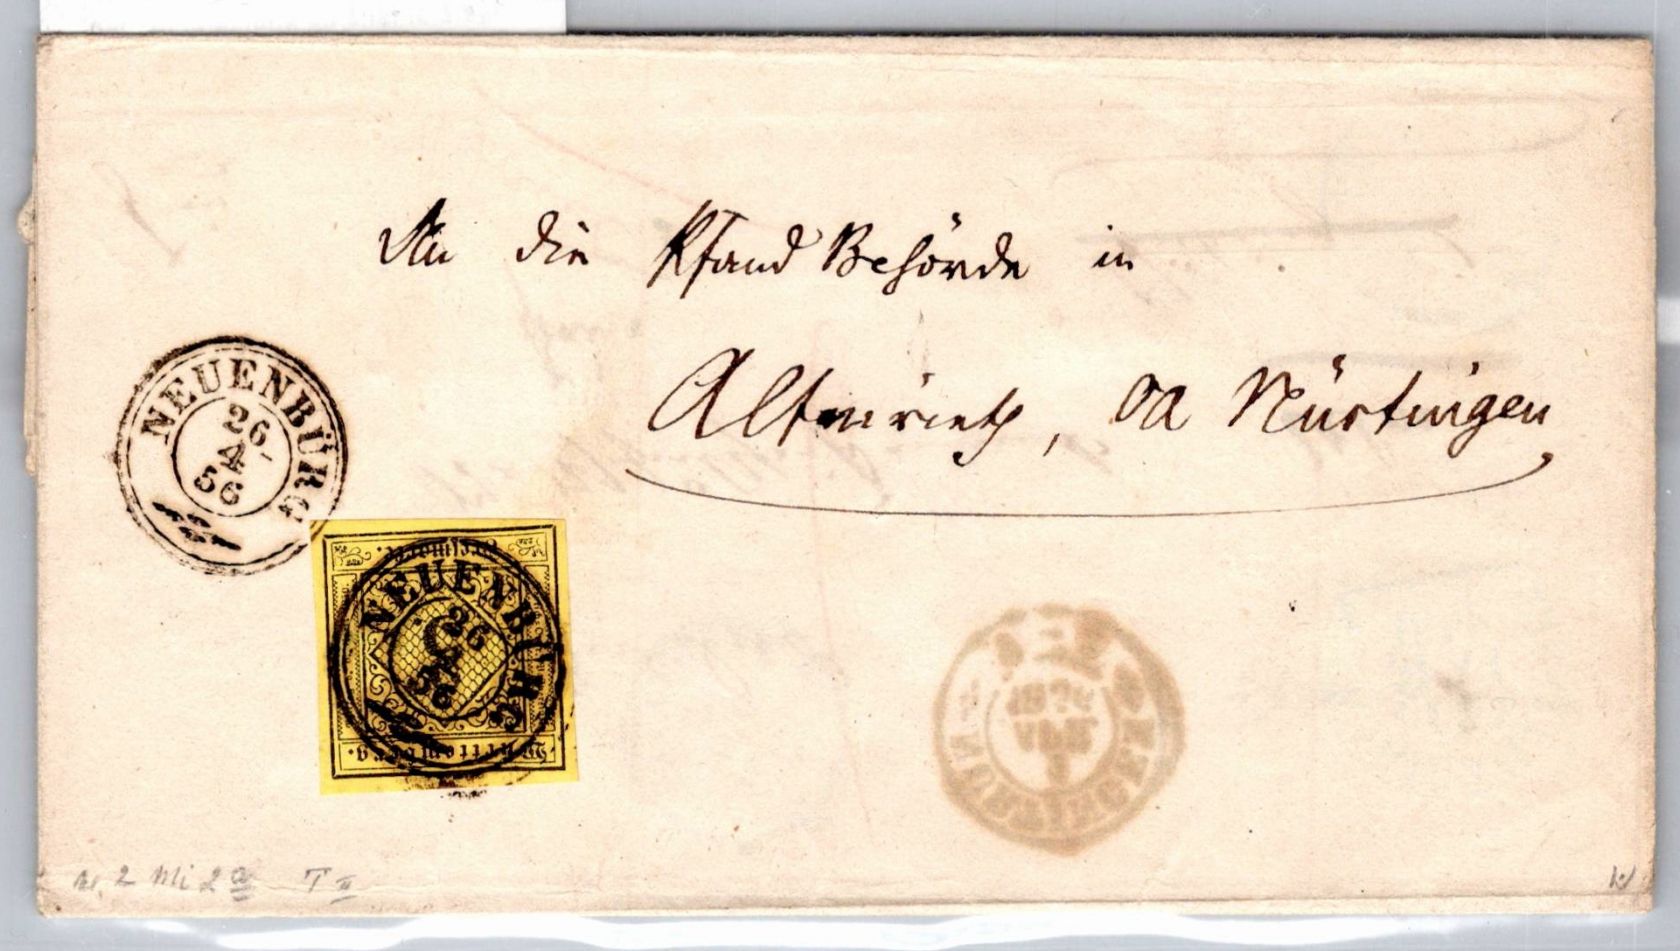 An die Pfand Behörde in
Altenrieth, OA Nürtingen
NEUENBÜRG
26
4
56
NEUENBÜRG
26
4
56
Württemberg.
N. 2 Mi 2a T II